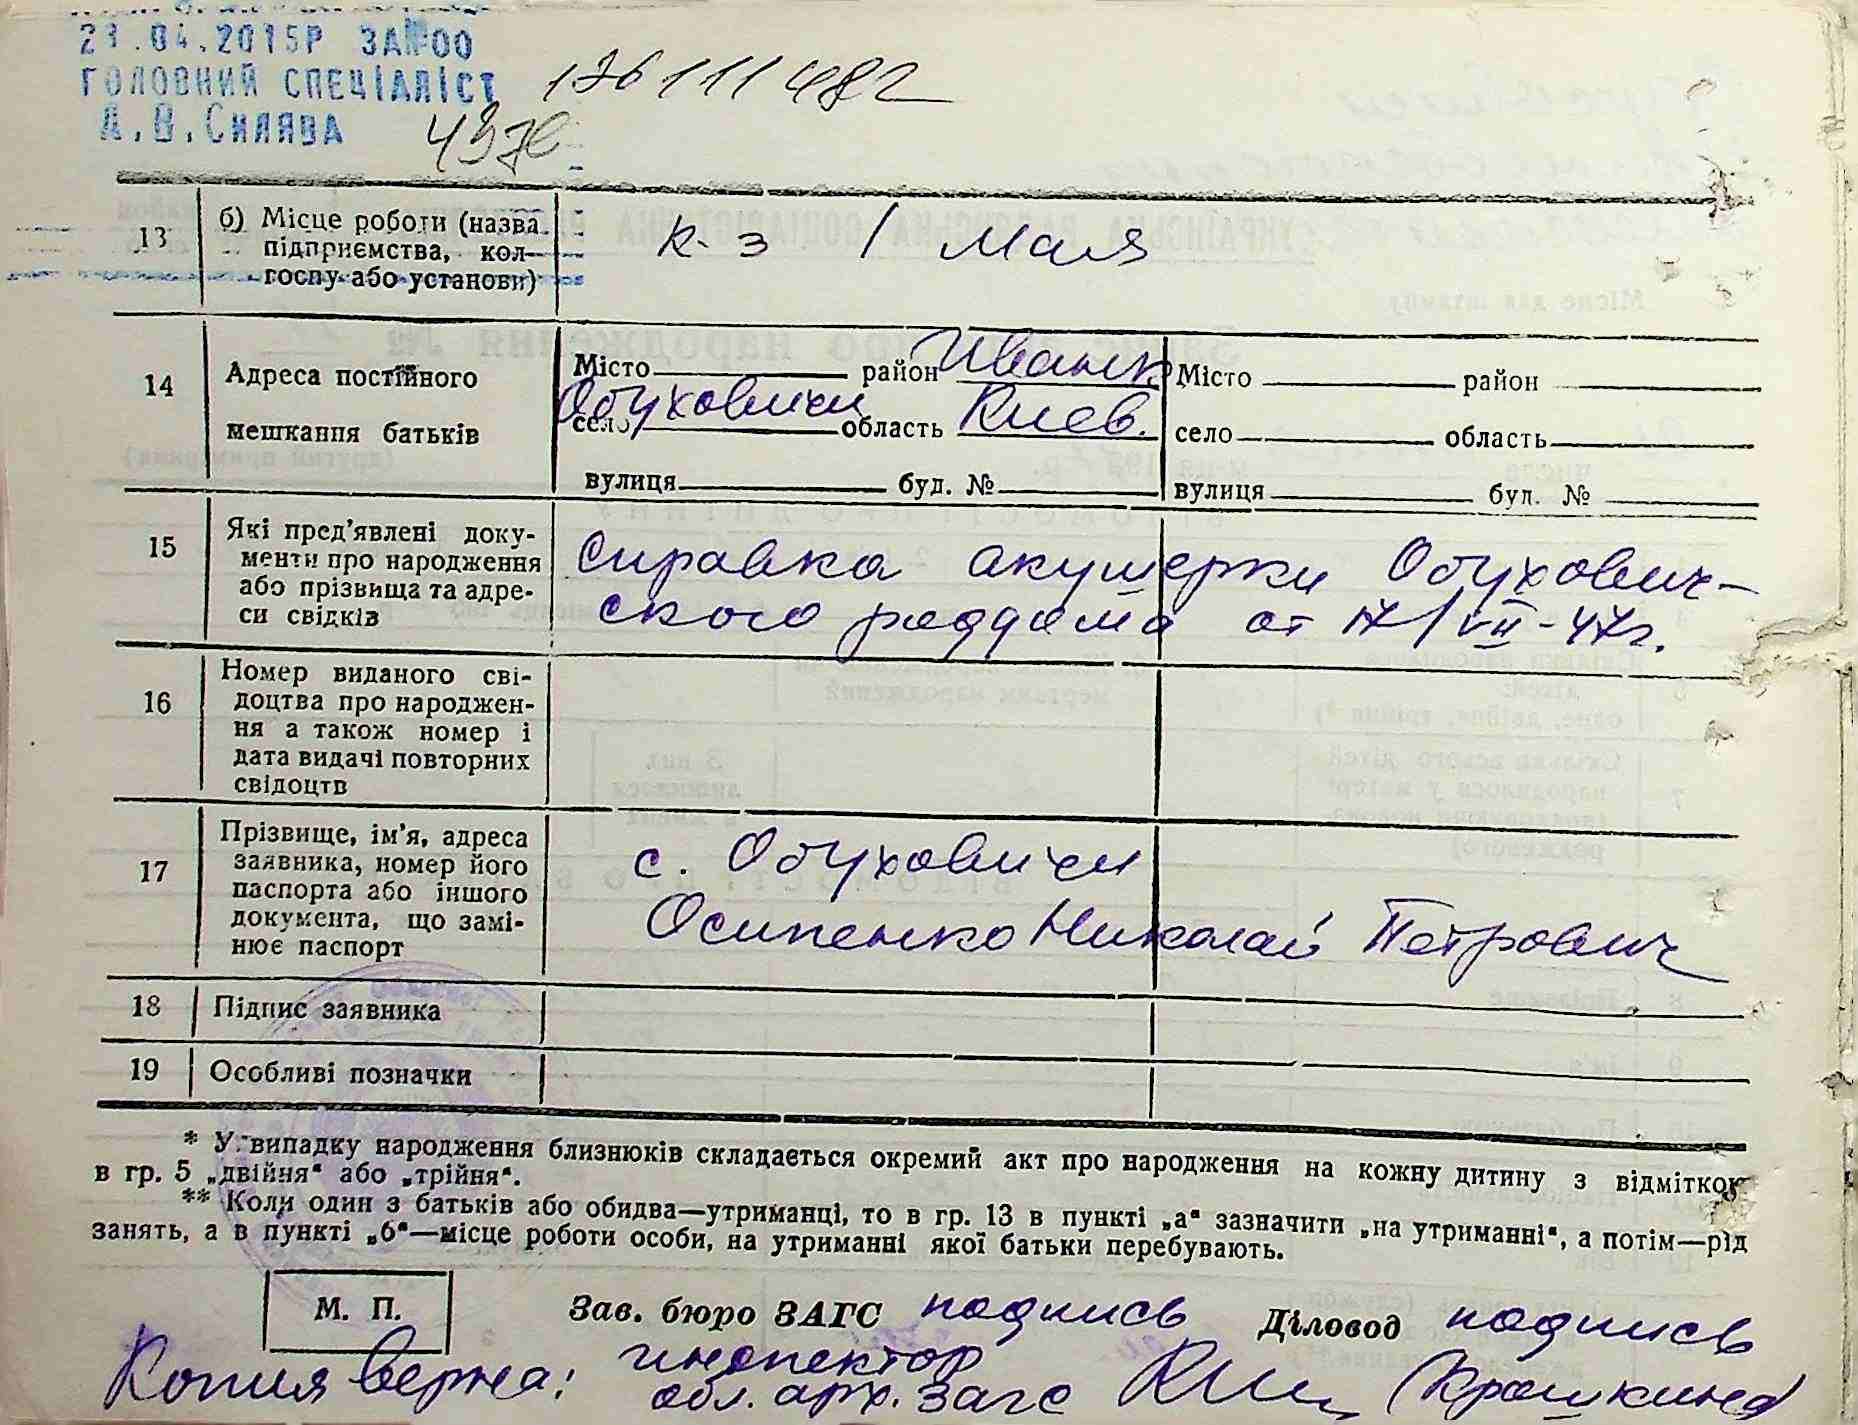 21.04.2015Р ЗА №00
ГОЛОВНИЙ СПЕЦІАЛІСТ
А.В.Силява
176111482
4970
13
б) Місце роботи (назва
підприємства, кол-
госпу або установи)
к-з 1 Мая
14
Адреса постійного
мешкання батьків
Місто район Иванк.
село Обуховичи область Киев.
вулиця буд. №
Місто район
село область
вулиця буд. №
15
Які пред'явлені доку-
менти про народження
або прізвища та адре-
си свідків
Справка акушерки Обухович-
ского роддома от 17/VII-47г.
16
Номер виданого сві-
доцтва про народжен-
ня а також номер і
дата видачі повторних
свідоцтв
17
Прізвище, ім'я, адреса
заявника, номер його
паспорта або іншого
документа, що замі-
нює паспорт
с. Обуховичи
Осипенко Николай Петрович
18
Підпис заявника
19
Особливі позначки
* У випадку народження близнюків складається окремий акт про народження на кожну дитину з відміткою
в гр. 5 „двійня“ або „трійня“.
** Коли один з батьків або обидва—утриманці, то в гр. 13 в пункті „а“ зазначити „на утриманні“, а потім—рід
занять, а в пункті „б“—місце роботи особи, на утриманні якої батьки перебувають.
М. П.
Зав. бюро ЗАГС подпись Діловод подпись
Копия верна: инспектор
обл. арх. загс (Крошкина)